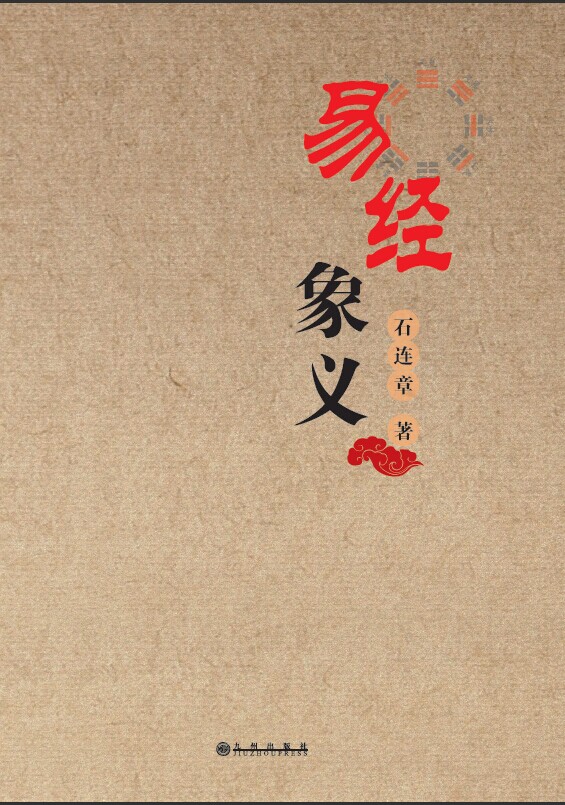 易经
象义
石连章 著
九州出版社
JIUZHOUPRESS